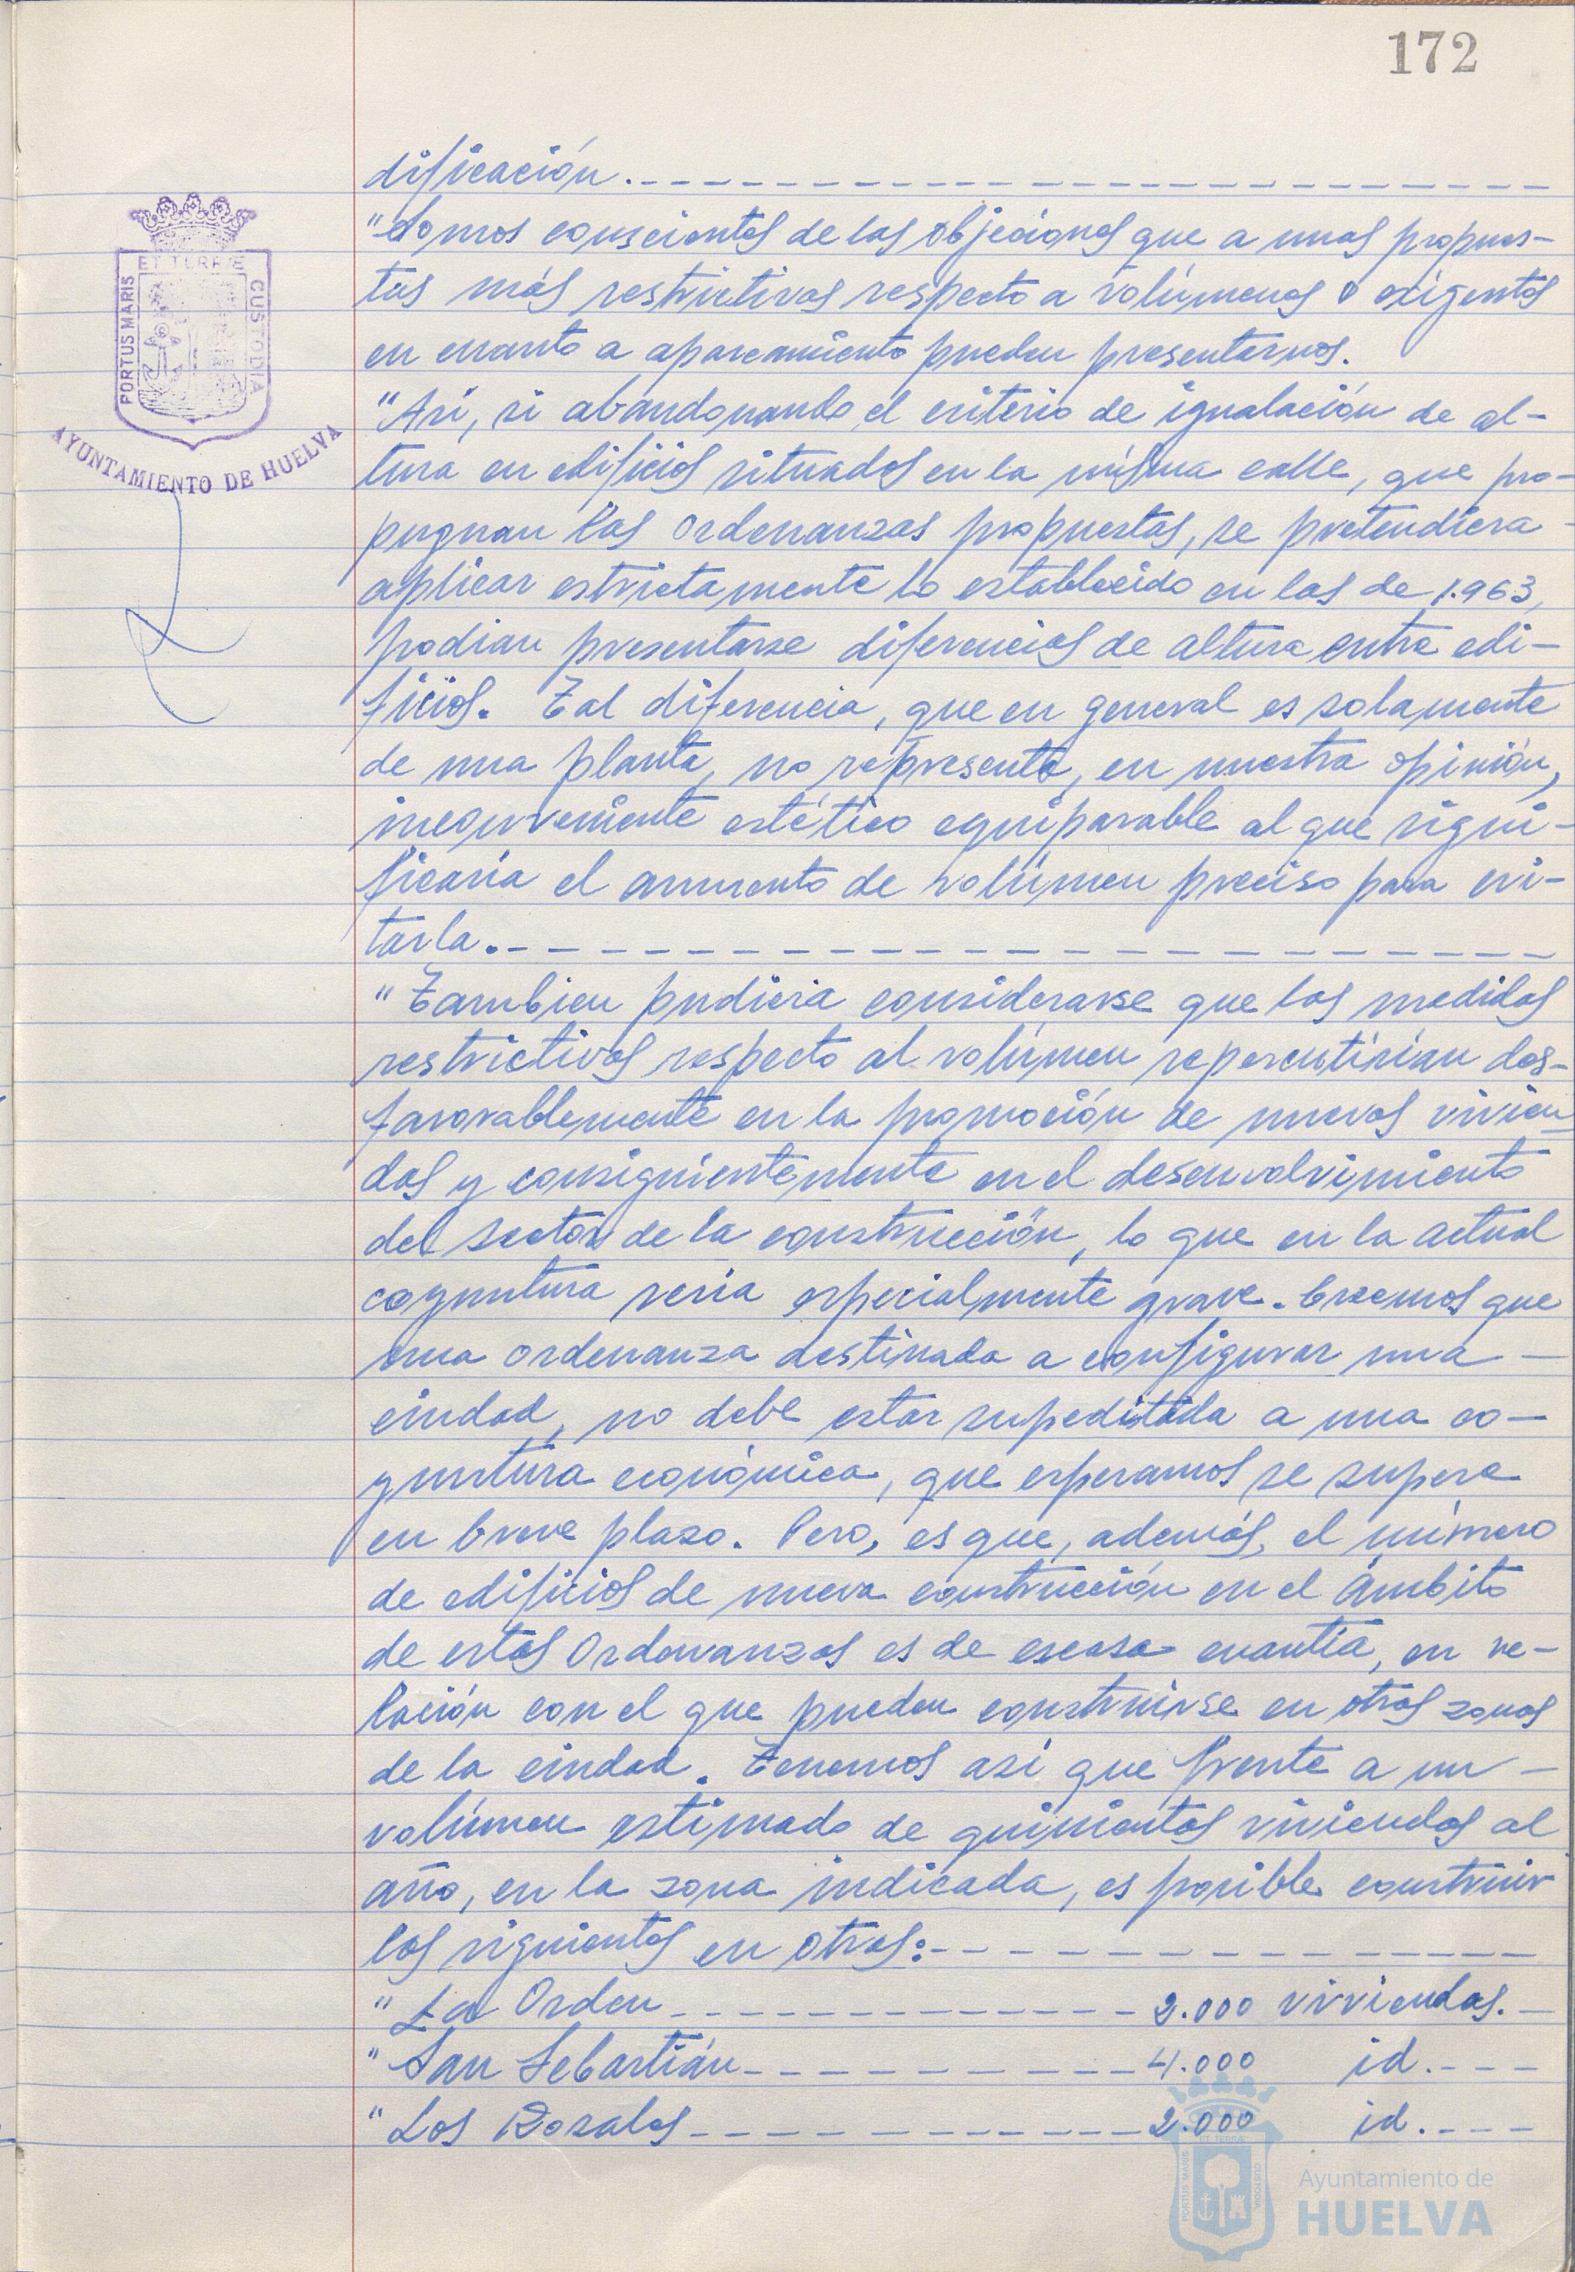 172
dificación.
"Somos conscientes de las objeciones que a unas propues-
tas más restrictivas respecto a volúmenes o exigentes
en cuanto a aparcamiento pueden presentarnos.
"Así, si abandonando el criterio de igualación de al-
tura en edificios situados en la misma calle, que pro-
pugnan las Ordenanzas propuestas, se pretendiera
aplicar estrictamente lo establecido en las de 1.963,
podian presentarse diferencias de altura entre edi-
ficios. Tal diferencia, que en general es solamente
de una planta, no representa, en nuestra opinión,
inconveniente estético equiparable al que signi-
ficaría el aumento de volúmen preciso para evi-
tarla.
"Tambien pudiera considerarse que las medidas
restrictivas respecto al volúmen repercutirían des-
favorablemente en la promoción de nuevas vivien
das y consiguientemente en el desenvolvimiento
del sector de la construcción, lo que en la actual
coyuntura sería especialmente grave. Creemos que
una ordenanza destinada a configurar una
ciudad, no debe estar supeditada a una co-
yuntura económica, que esperamos se supere
en breve plazo. Pero, es que, además, el número
de edificios de nueva construcción en el ámbito
de estas Ordenanzas es de escasa cuantía, en re-
lación con el que pueden construirse en otras zonas
de la ciudad. Tenemos así que frente a un
volúmen estimado de quinientas viviendas al
año, en la zona indicada, es posible construir
las siguientes en otras:
"La Orden 2.000 viviendas.
"San Sebastián 4.000 id.
"Los Rosales 2.000 id.
PORTUS MARIS ET TERRÆ CUSTODIA
AYUNTAMIENTO DE HUELVA
Ayuntamiento de
HUELVA